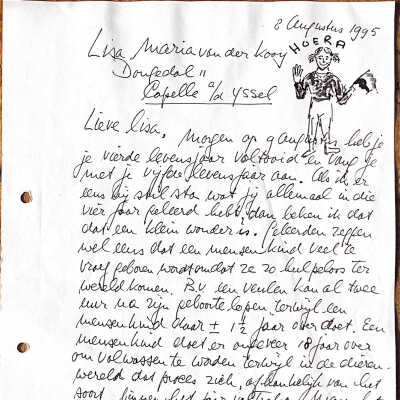 8 Augustus 1995
HOERA
Lisa Maria van der Kooy
Dongedal 11
Capelle a/d Yssel
Lieve Lisa, Morgen op 9 Augustus heb je
je vierde levensjaar voltooid en vang je
met je vyfde levensjaar aan. Als ik er
eens bij stil sta wat jij allemaal in die
vier jaar geleerd hebt, dan beken ik dat
dat een klein wonder is. Geleerden zeggen
wel eens dat een mensenkind veel te
vroeg geboren wordt omdat ze zo hulpeloos ter
wereld komen. B.v. een veulen kan al twee
uur na zijn geboorte lopen, terwijl een
mensenkind daar ± 1½ jaar over doet. Een
mensenkind doet er ongeveer 18 jaar over
om volwassen te worden terwijl in de dieren-
wereld dat proces zich, afhankelijk van het
soort, binnen het jaar